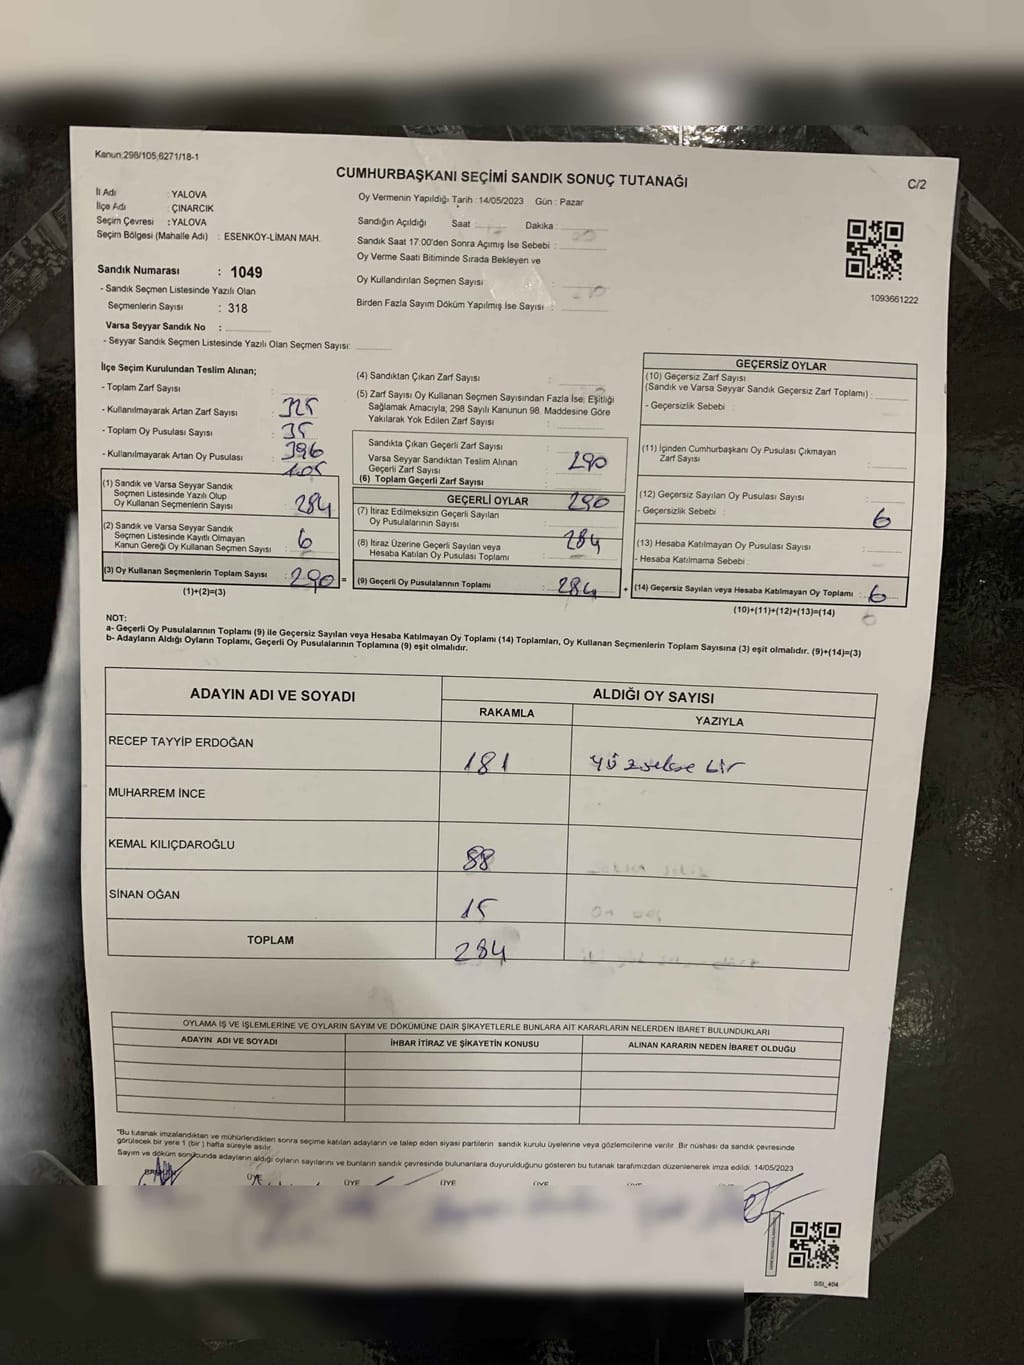 Kanun:298/105,6271/18-1
CUMHURBAŞKANI SEÇİMİ SANDIK SONUÇ TUTANAĞI
C/2
İl Adı : YALOVA
İlçe Adı : ÇINARCIK
Seçim Çevresi : YALOVA
Seçim Bölgesi (Mahalle Adı) : ESENKÖY-LİMAN MAH.
Oy Vermenin Yapıldığı Tarih : 14/05/2023 Gün : Pazar
Sandığın Açıldığı Saat : Dakika :
Sandık Saat 17:00'den Sonra Açımış İse Sebebi :
Oy Verme Saati Bitiminde Sırada Bekleyen ve
Oy Kullandırılan Seçmen Sayısı :
Birden Fazla Sayım Döküm Yapılmış İse Sayısı :
1093661222
Sandık Numarası : 1049
- Sandık Seçmen Listesinde Yazılı Olan
Seçmenlerin Sayısı : 318
Varsa Seyyar Sandık No :
- Seyyar Sandık Seçmen Listesinde Yazılı Olan Seçmen Sayısı:
İlçe Seçim Kurulundan Teslim Alınan;
- Toplam Zarf Sayısı : 325
- Kullanılmayarak Artan Zarf Sayısı : 35
- Toplam Oy Pusulası Sayısı : 396
- Kullanılmayarak Artan Oy Pusulası :
(1) Sandık ve Varsa Seyyar Sandık
Seçmen Listesinde Yazılı Olup
Oy Kullanan Seçmenlerin Sayısı : 284
(2) Sandık ve Varsa Seyyar Sandık
Seçmen Listesinde Kayıtlı Olmayan
Kanun Gereği Oy Kullanan Seçmen Sayısı : 6
(3) Oy Kullanan Seçmenlerin Toplam Sayısı : 290 =
(1)+(2)=(3)
(4) Sandıktan Çıkan Zarf Sayısı :
(5) Zarf Sayısı Oy Kullanan Seçmen Sayısından Fazla İse, Eşitliği
Sağlamak Amacıyla; 298 Sayılı Kanunun 98. Maddesine Göre
Yakılarak Yok Edilen Zarf Sayısı :
Sandıkta Çıkan Geçerli Zarf Sayısı :
Varsa Seyyar Sandıktan Teslim Alınan
Geçerli Zarf Sayısı : 290
(6) Toplam Geçerli Zarf Sayısı :
GEÇERLİ OYLAR 290
(7) İtiraz Edilmeksizin Geçerli Sayılan
Oy Pusulalarının Sayısı : 284
(8) İtiraz Üzerine Geçerli Sayılan veya
Hesaba Katılan Oy Pusulası Toplamı :
(9) Geçerli Oy Pusulalarının Toplamı : 284 +
GEÇERSİZ OYLAR
(10) Geçersiz Zarf Sayısı
(Sandık ve Varsa Seyyar Sandık Geçersiz Zarf Toplamı) :
- Geçersizlik Sebebi :
(11) İçinden Cumhurbaşkanı Oy Pusulası Çıkmayan
Zarf Sayısı :
(12) Geçersiz Sayılan Oy Pusulası Sayısı :
- Geçersizlik Sebebi : 6
(13) Hesaba Katılmayan Oy Pusulası Sayısı :
- Hesaba Katılmama Sebebi :
(14) Geçersiz Sayılan veya Hesaba Katılmayan Oy Toplamı : 6
(10)+(11)+(12)+(13)=(14)
NOT:
a- Geçerli Oy Pusulalarının Toplamı (9) ile Geçersiz Sayılan veya Hesaba Katılmayan Oy Toplamı (14) Toplamları, Oy Kullanan Seçmenlerin Toplam Sayısına (3) eşit olmalıdır. (9)+(14)=(3)
b- Adayların Aldığı Oyların Toplamı, Geçerli Oy Pusulalarının Toplamına (9) eşit olmalıdır.
ADAYIN ADI VE SOYADI ALDIĞI OY SAYISI
RAKAMLA YAZIYLA
RECEP TAYYİP ERDOĞAN 181
MUHARREM İNCE
KEMAL KILIÇDAROĞLU 88
SİNAN OĞAN 15
TOPLAM 284
OYLAMA İŞ VE İŞLEMLERİNE VE OYLARIN SAYIM VE DÖKÜMÜNE DAİR ŞİKAYETLERLE BUNLARA AİT KARARLARIN NELERDEN İBARET BULUNDUKLARI
ADAYIN ADI VE SOYADI İHBAR İTİRAZ VE ŞİKAYETİN KONUSU ALINAN KARARIN NEDEN İBARET OLDUĞU
*Bu tutanak imzalandıktan ve mühürlendikten sonra seçime katılan adayların ve talep eden siyasi partilerin sandık kurulu üyelerine veya gözlemcilerine verilir. Bir nüshası da sandık çevresinde
görülecek bir yere 1 (bir) hafta süreyle asılır.
Sayım ve döküm sonucunda adayların aldığı oyların sayılarını ve bunların sandık çevresinde bulunanlara duyurulduğunu gösteren bu tutanak tarafımızdan düzenlenerek imza edildi. 14/05/2023
ÜYE ÜYE ÜYE ÜYE
SSI_404